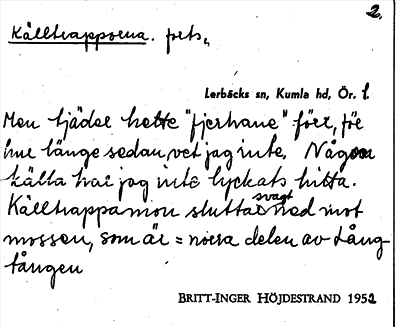 2.
Källtrapporna. forts.
Lerbäcks sn, Kumla hd, Ör. l.
Men tjäder hette "fjerhane" förr, för
hur länge sedan, vet jag inte. Någon
källa har jag inte lyckats hitta.
Källtrappamon sluttar svagt ned mot
mossen, som är = norra delen av Lång-
tången
BRITT-INGER HÖJDESTRAND 1952